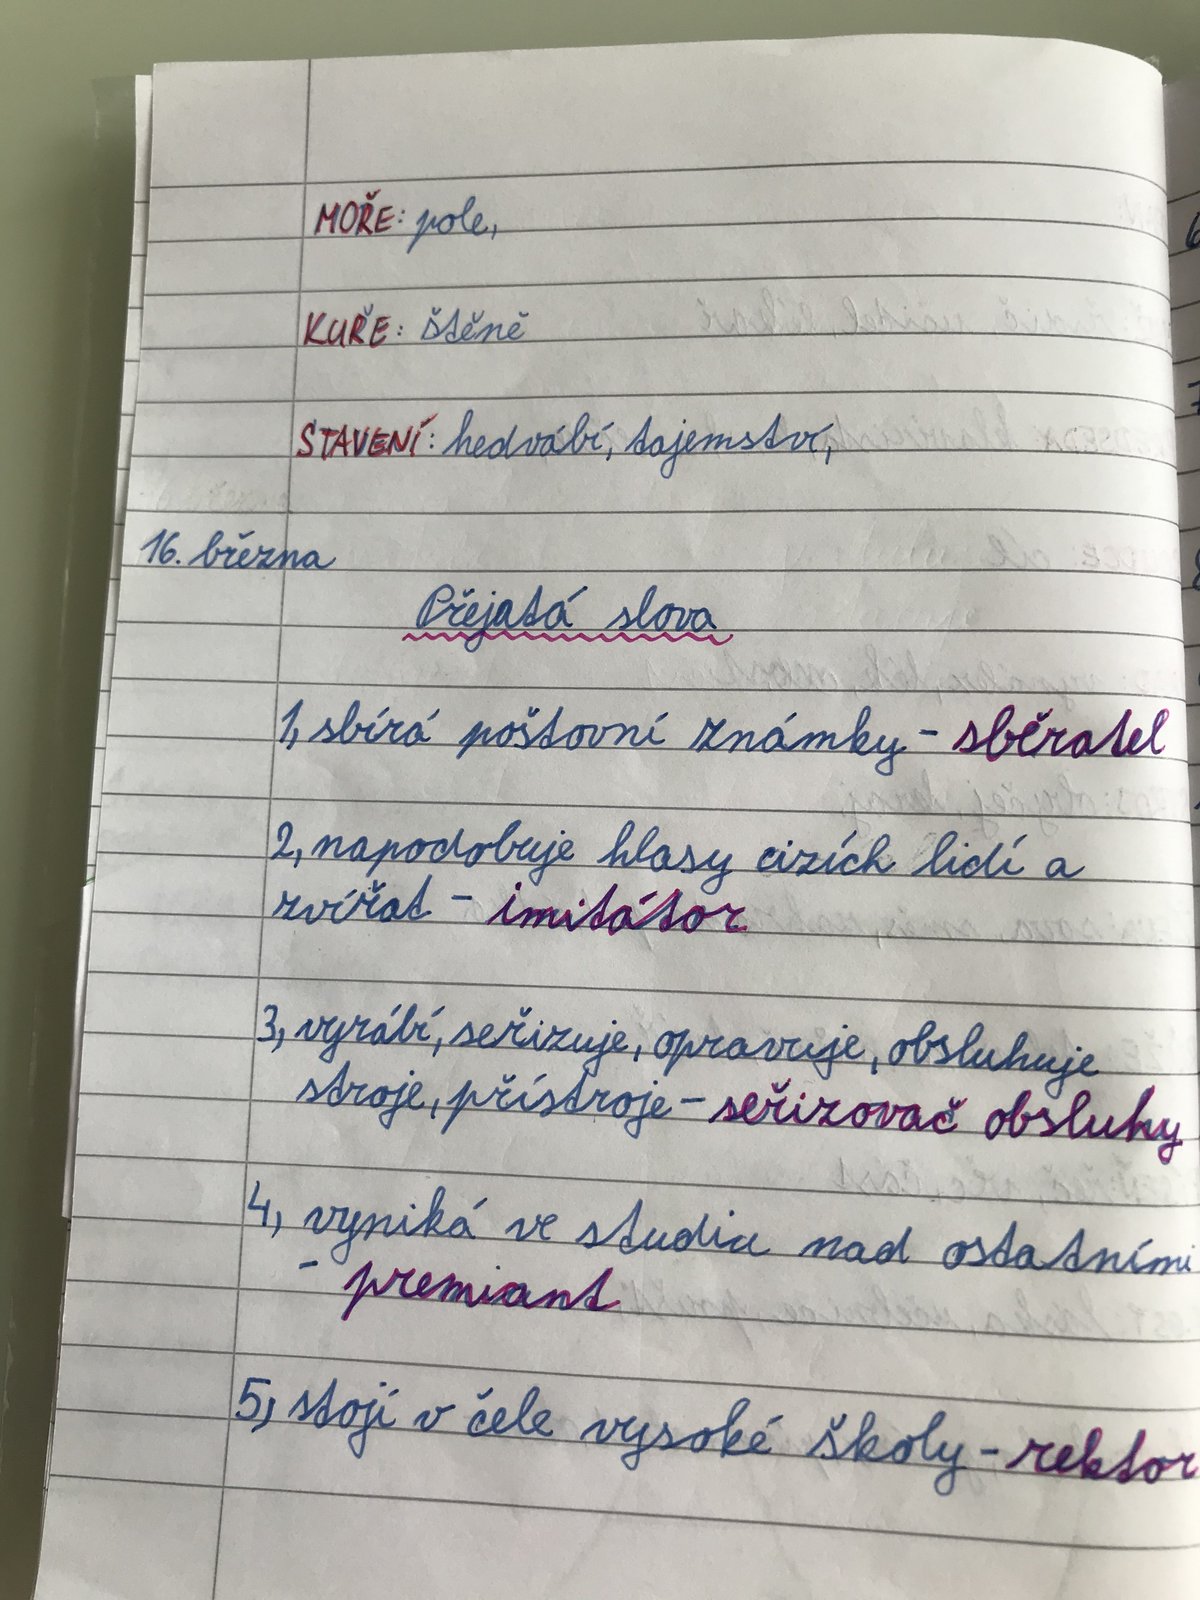 MOŘE: pole,
KUŘE: štěně
STAVENÍ: hedvábí, tajemství,
16. března
Přejatá slova
1, sbírá poštovní známky - sběratel
2, napodobuje hlasy cizích lidí a
zvířat - imitátor
3, vyrábí, seřizuje, opravuje, obsluhuje
stroje, přístroje - seřizovač obsluhy
4, vyniká ve studiu nad ostatními
- premiant
5, stojí v čele vysoké školy - rektor